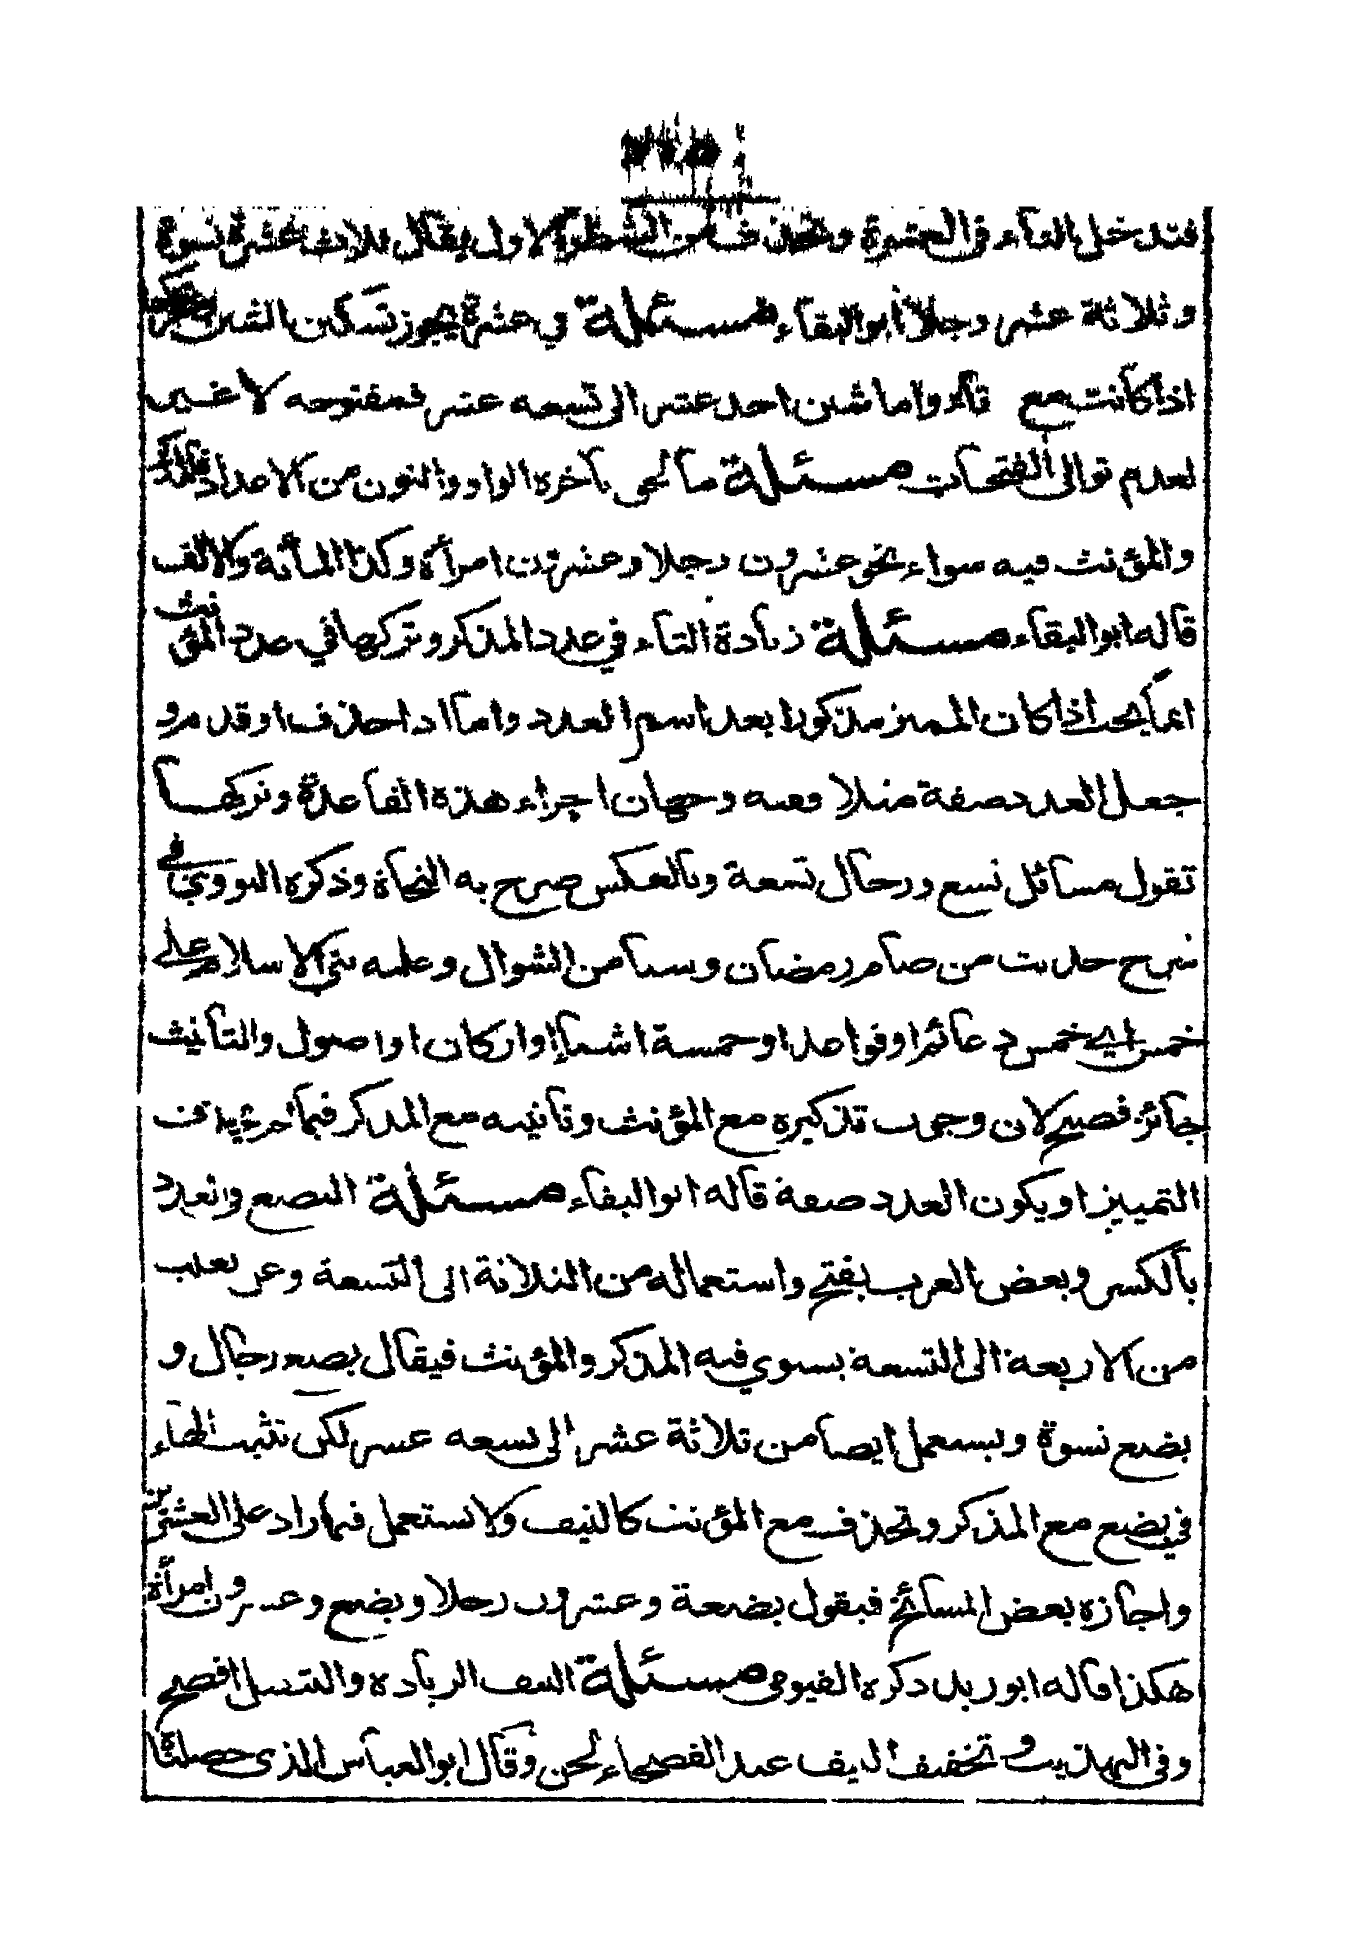 فتدخل التاء في العشرة وتحذف من الشطر الاول يقال ثلاث عشرة نسوة
وثلاثة عشر رجلا أبو البقاء مسئلة في عشرة يجوز تسكين الشين
اذا كانت مع تاء واما شين احد عشر الى تسعه عشر فمفتوحه لا غير
لعدم توالى الفتحات مسئلة ما لحق بآخره الواو والنون من الاعداد
والمؤنث فيه سواء نحو عشرون رجلا وعشرون امرأة وكذا المائة والالف
قاله ابو البقاء مسئلة زيادة التاء في عدد المذكر وتركها في عدد المؤنث
انما يجب اذا كان المميز مذكورا بعد اسم العدد واما اذا حذف او قدم و
جعل العدد صفة مثلا ففيه وجهان اجراء هذه القاعدة وتركها
تقول مسائل تسع ورجال تسعة وبالعكس صرح به النحاة وذكره النووي في
شرح حديث من صام رمضان وستا من الشوال وعليه بني الاسلام على
خمس اي خمس دعائم او قواعد او خمسة اشياء او اركان او اصول والتأنيث
جائز فصيح لان وجوب تذكيره مع المؤنث وتانيثه مع المذكر فيما لم يحذف
التمييز او يكون العدد صفة قاله ابو البقاء مسئلة البضع في العدد
بالكسر وبعض العرب بفتح واستعماله من الثلاثة الى التسعة وعن ثعلب
من الاربعة الى التسعة يستوي فيه المذكر والمؤنث فيقال بضع رجال و
بضع نسوة ويستعمل ايضا من ثلاثة عشر الى تسعه عشر لكن تثبت الهاء
في بضع مع المذكر وتحذف مع المؤنث كالنيف ولا تستعمل فيما زاد على العشرين
واجازه بعض المشائخ فيقول بضعة وعشرون رجلا وبضع وعشرون امرأة
هكذا قاله ابو زيد ذكره الفيومي مسئلة النيف الزيادة والتثقيل افصح
وفي التهذيب وتخفيف النيف عند الفصحاء لحن وقال ابو العباس الذي حصلناه